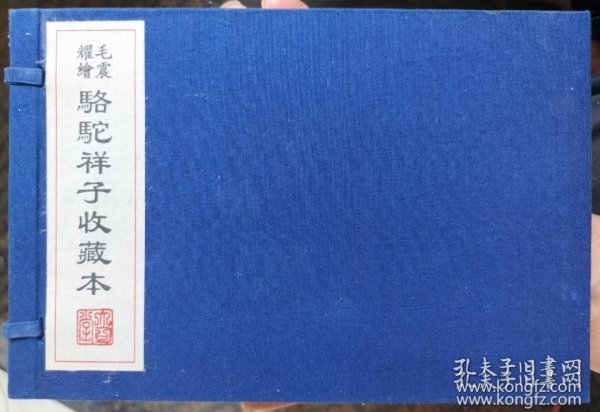 毛震
耀繪
駱駝祥子收藏本
孔夫子旧書网
www.kongfz.com
www.kongfz.com